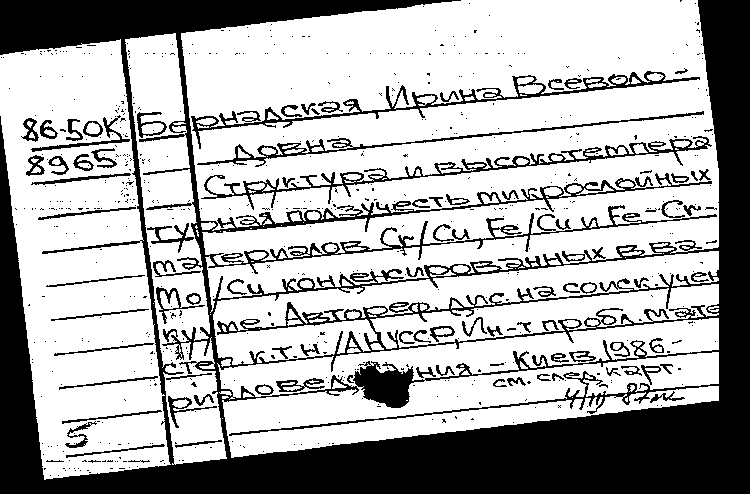 86-50К
8965
Бернадская, Ирина Всеволо-
довна.
Структура и высокотемпера
турная ползучесть микрослойных
материалов Cr/Cu, Fe/Cu и Fe-Cr-
Mo/Cu, конденсированных в ва-
кууме: Автореф. дис. на соиск. учен
степ. к.т.н. /АН УССР, Ин-т пробл. мате
риаловедения. - Киев, 1986.-
см. след. карт.
4/III-87
5